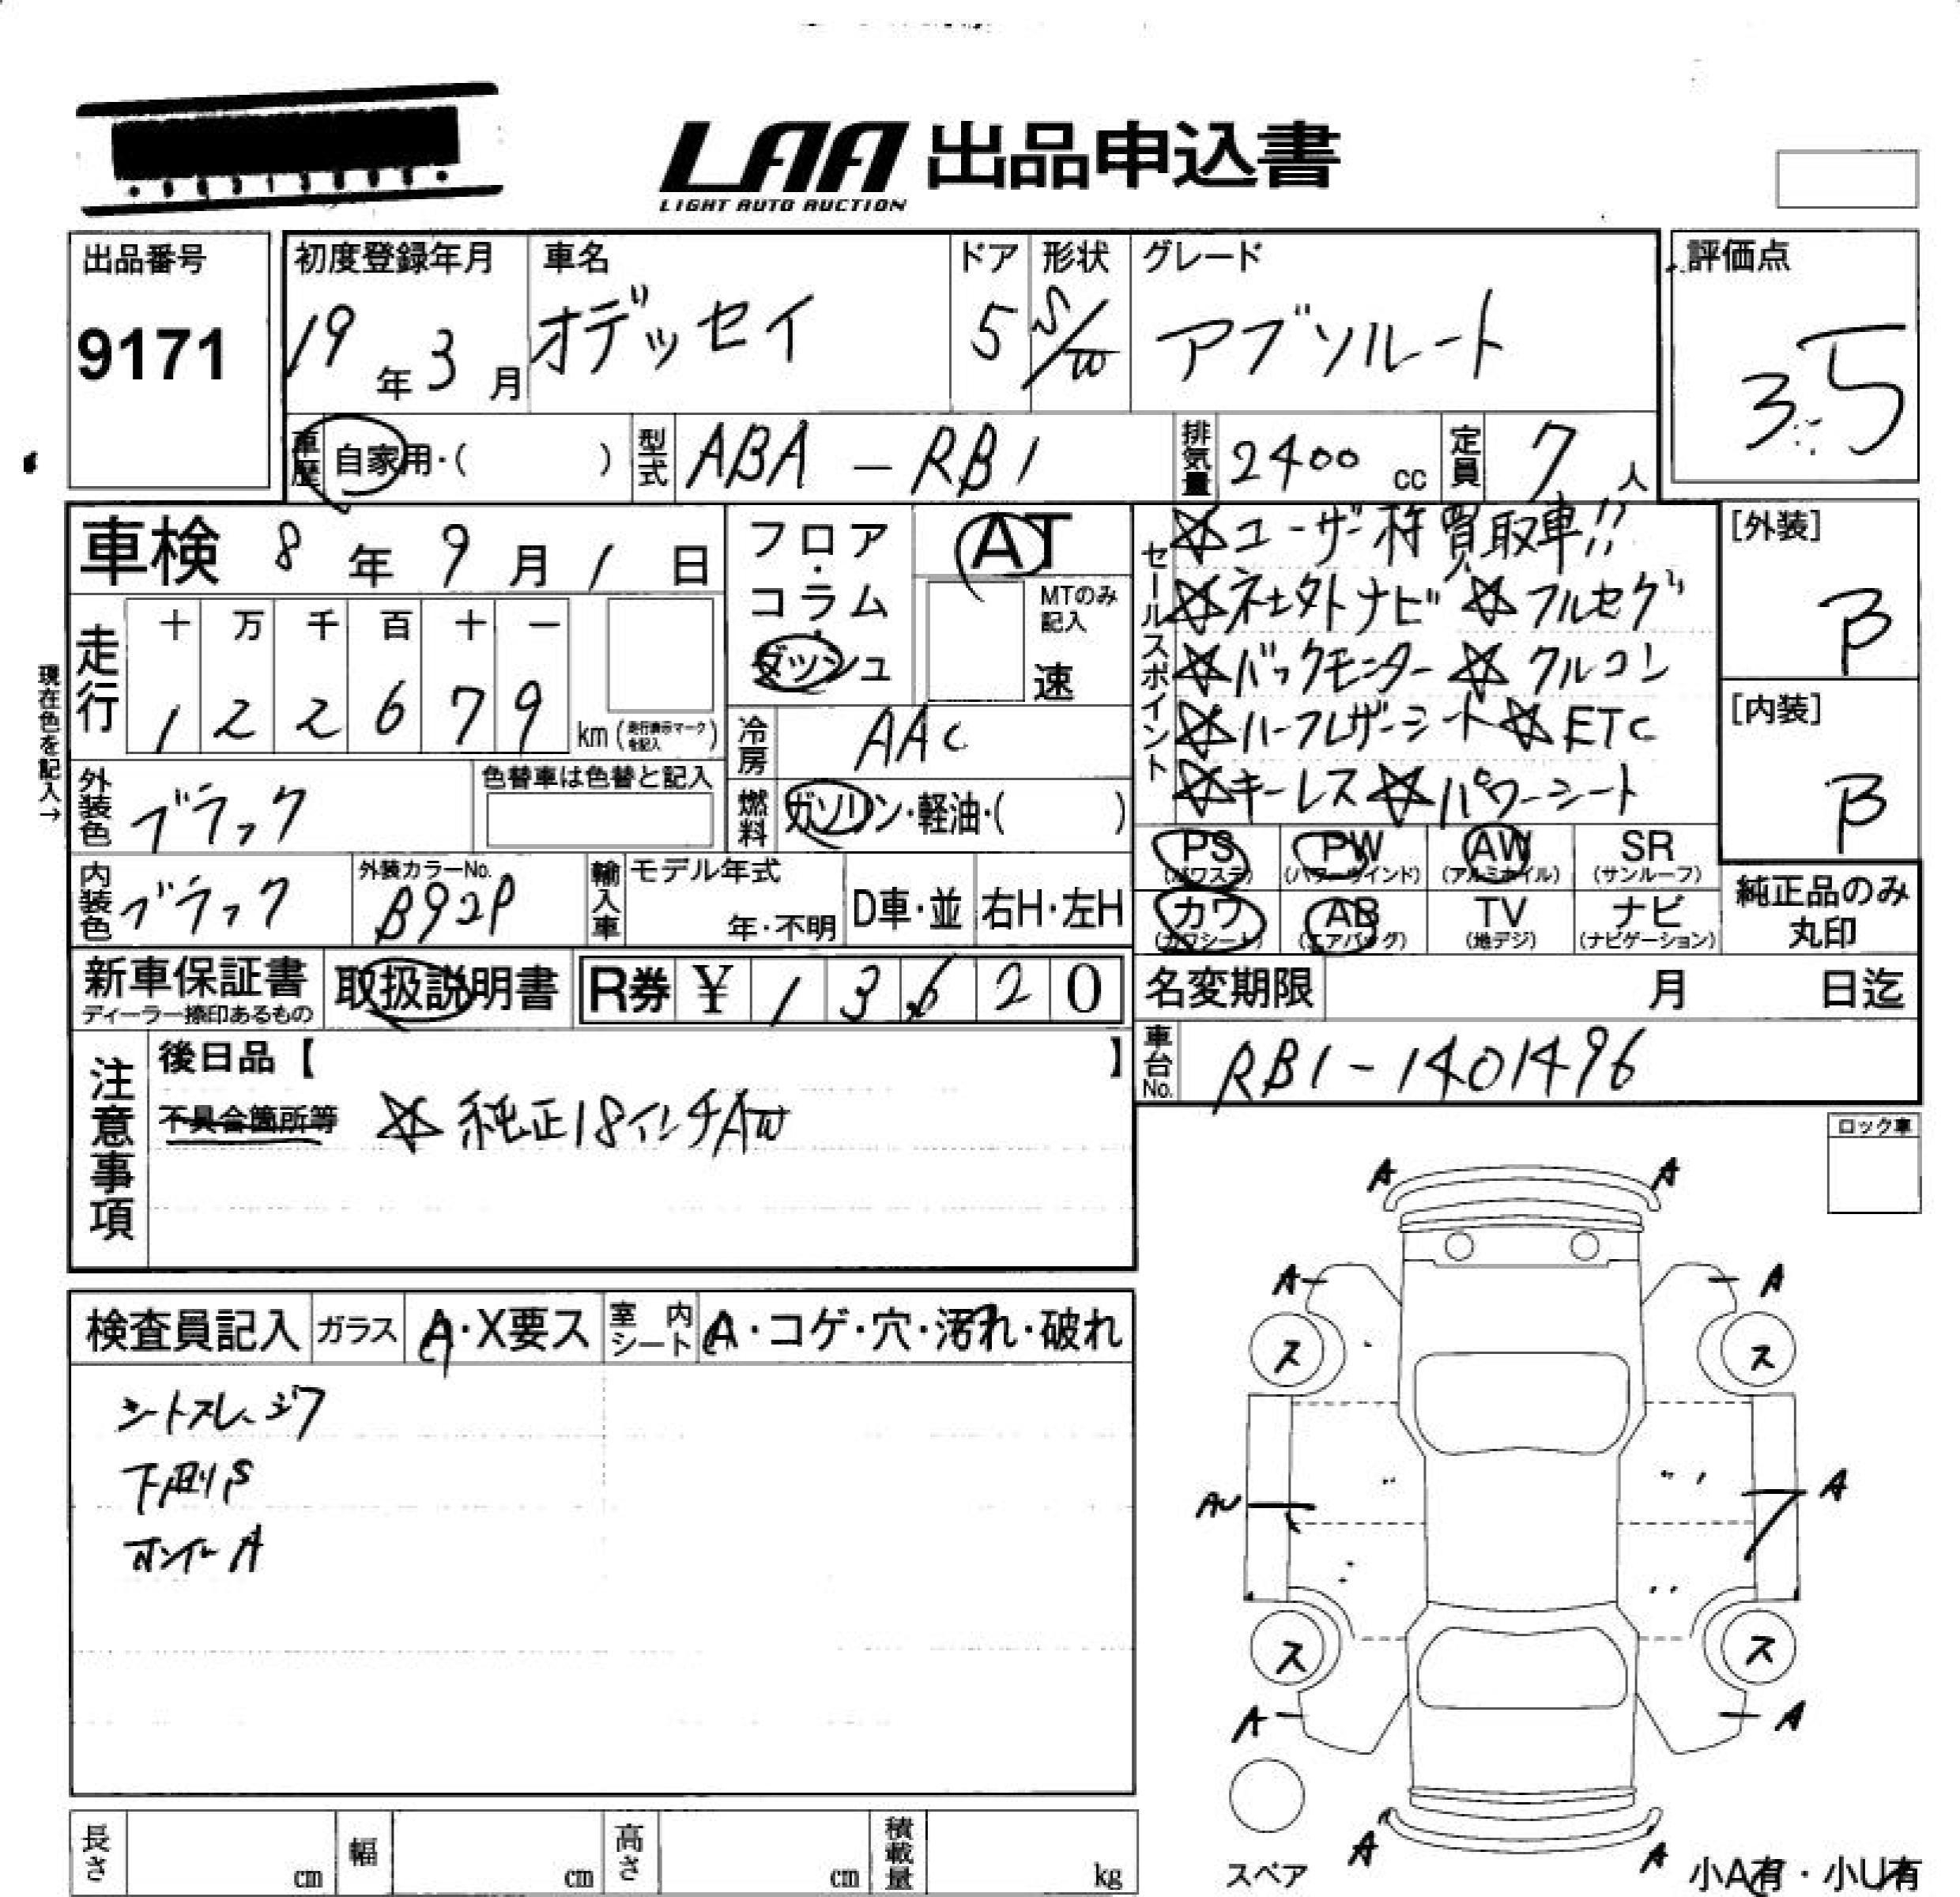 LAA 出品申込書
LIGHT AUTO AUCTION
出品番号
9171
初度登録年月
19年3月
車名
オデッセイ
ドア
5
形状
S/W
グレード
アブソルート
評価点
3.5
車歴
自家用・( )
型式
ABA-RB1
排気量
2400cc
定員
7人
車検 8年9月1日
フロア・コラム・ダッシュ
AT
MTのみ記入
速
走行
十万千百十一
122679
km(走行表示マークを記入)
現在色を記入→
冷房
AAC
外装色
ブラック
色替車は色替と記入
燃料
ガソリン・軽油・( )
内装色
ブラック
外装カラーNo.
B92P
輸入車
モデル年式
年・不明
D車・並
右H・左H
新車保証書
ディーラー捺印あるもの
取扱説明書
R券 ¥ 13620
セールスポイント
☆ユーザー様買取車!!
☆社外ナビ ☆フルセグ
☆バックモニター ☆クルコン
☆ハーフレザーシート ☆ETC
☆キーレス ☆パワーシート
[外装]
B
[内装]
B
PS (パワステ)
PW (パワーウインド)
AW (アルミホイル)
SR (サンルーフ)
カワ (カワシート)
AB (エアバッグ)
TV (地デジ)
ナビ (ナビゲーション)
純正品のみ丸印
名変期限 月 日迄
車台No.
RB1-1401496
注意事項
後日品【 】
不具合箇所等 ☆純正18インチAW
ロック車
検査員記入
ガラス
A・X要ス
室内シート
A・コゲ・穴・汚れ・破れ
シートスレ、シワ
下廻りS
ホイールA
A A
A A
ス ス
AU A
ス ス
A A
A A
スペア
小A有・小U有
長さ cm
幅 cm
高さ cm
積載量 kg